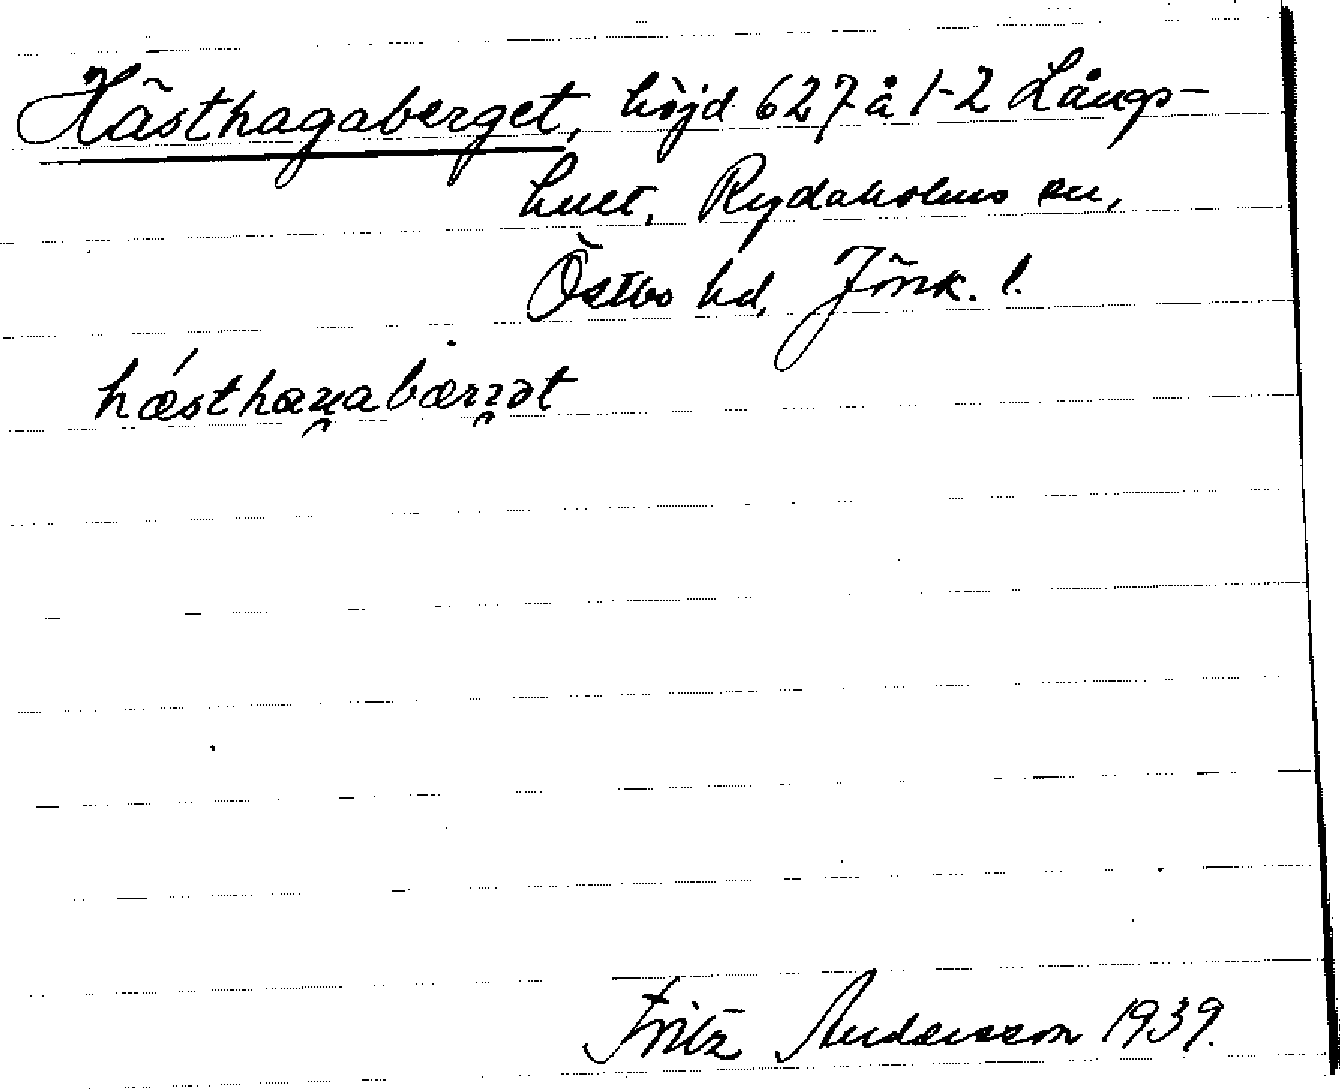 Hästhagaberget, höjd 627 å 1-2 Långs-
hult, Rydaholms sn,
Östbo hd, Jönk. l.
hǽsthaɡabærjət
Fritz Andersson 1939.